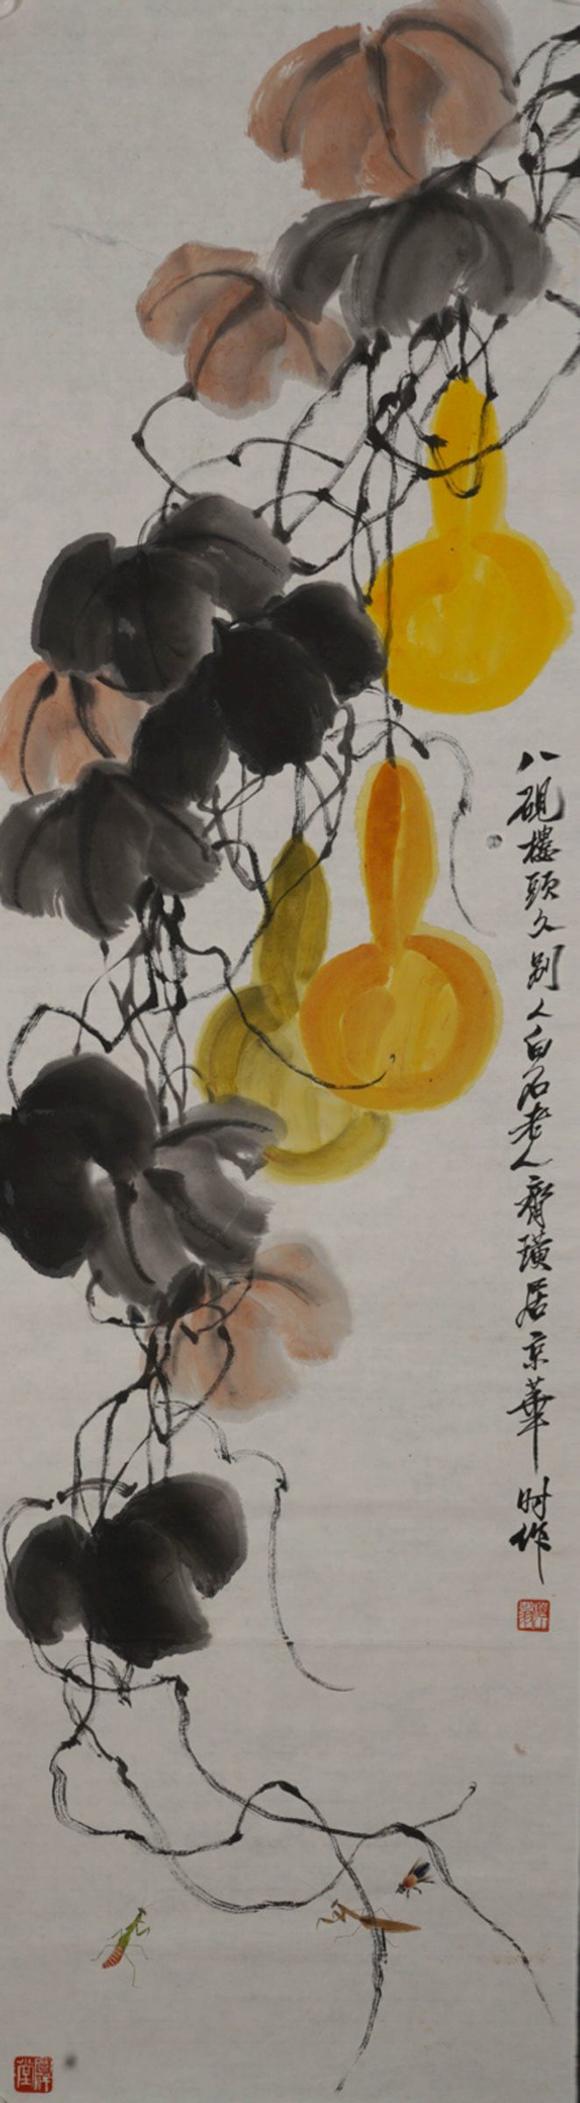 八砚楼头久别人白石老人齊璜居京華时作